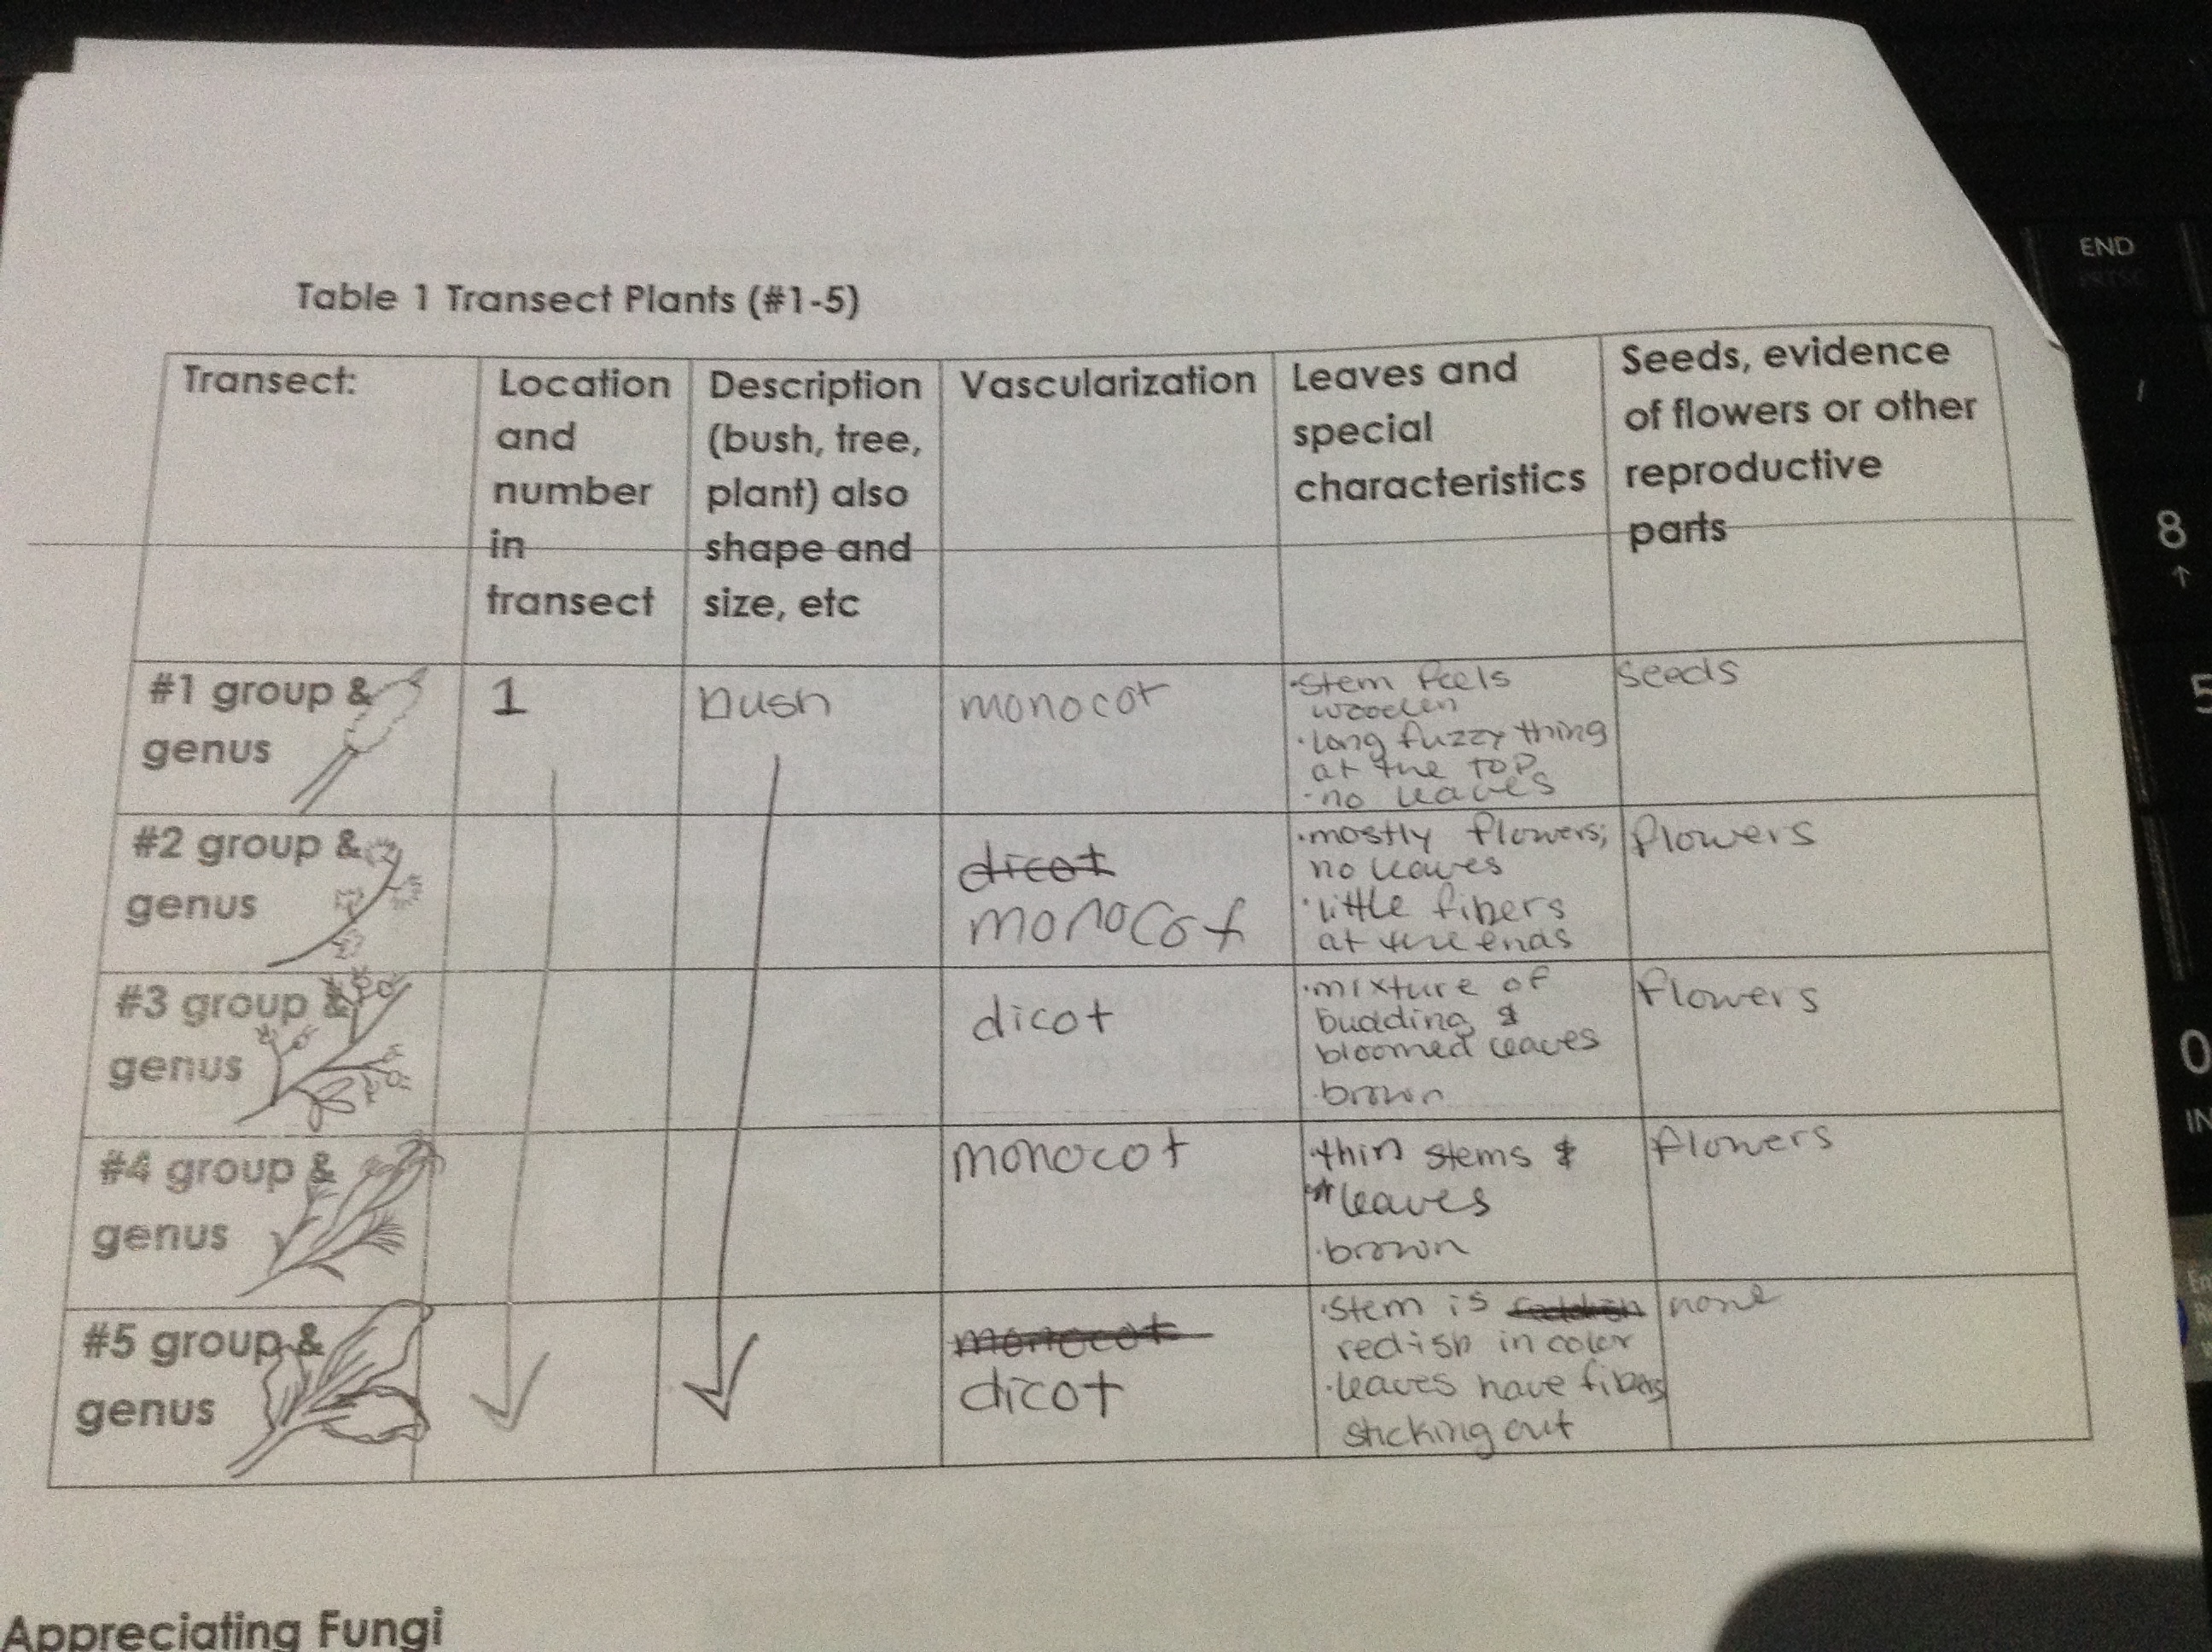 Table 1 Transect Plants (#1-5)
Transect:
Location
and
number
in
transect
Description
(bush, tree,
plant) also
shape and
size, etc
Vascularization
Leaves and
special
characteristics
Seeds, evidence
of flowers or other
reproductive
parts
#1 group &
genus
1
bush
monocot
·stem feels
wooden
·long fuzzy thing
at the top
·no leaves
seeds
#2 group &
genus
dicot
monocot
·mostly flowers;
no leaves
·little fibers
at the ends
flowers
#3 group &
genus
dicot
·mixture of
budding &
bloomed leaves
·brown
flowers
#4 group &
genus
monocot
·thin stems &
leaves
·brown
flowers
#5 group &
genus
monocot
dicot
·stem is
redish in color
·leaves have fibers
sticking out
none
Appreciating Fungi
END
8
5
0
IN